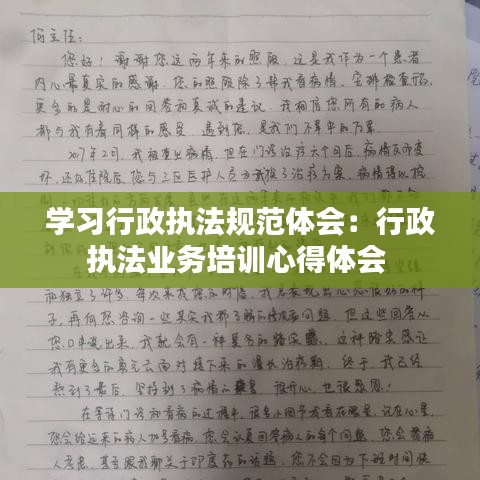 何主任：
您好！谢谢您这两年来的照顾，这是我作为一个患者
内心最真实的感谢。您的照顾除了帮我看病情、安排检查外，
更多的是耐心的回答和真诚的建议。我相信您所有的病人
都与我有着同样的感受，遇到您，是我们不幸中的万幸。
2017年2月，我被查出病情，但在门诊治疗六个月后，病情反而变
坏，还好住院后，您与三区医护人员为我换了治疗方案，病情得以控
学习行政执法规范体会：行政
执法业务培训心得体会
而独立了许多。每次来找您的时候，我总表现出心态很好的样
子，再向您咨询一些其实我都了解的情况和问题，但这些回答从
您口中说出来，我就会有一种莫名的踏实感，这种踏实感让
我有更多的勇气去面对接下来的漫长治疗期。终于，我已经
熬到了最后，坚持到了病情的，很开心，也很感恩！
在等待门诊和看病的过程中，很多小细节我看在眼里，记在心里，
您会给远来的病人加号看病，您会认真回答病人的每个问题，您会替病
人考虑，甚至跟我聊关于印度药的话题，您不会因为下班时间快